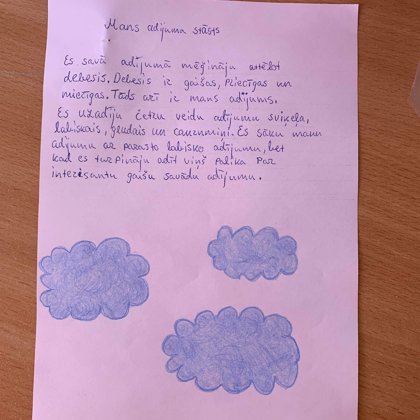 Mans adījuma stāsts
Es savā adījumā mēģināju attēlot
debesis. Debesis ir gaišas, priecīgas un
mierīgas. Tāds arī ir mans adījums.
Es uzadīju četru veidu adījumu svikeļa,
labiskais, gludais un caurumiņi. Es sāku manu
adījumu ar parasto labisko adījumu, bet
kad es turpināju adīt viņš palika par
interesantu gaišu savādu adījumu.